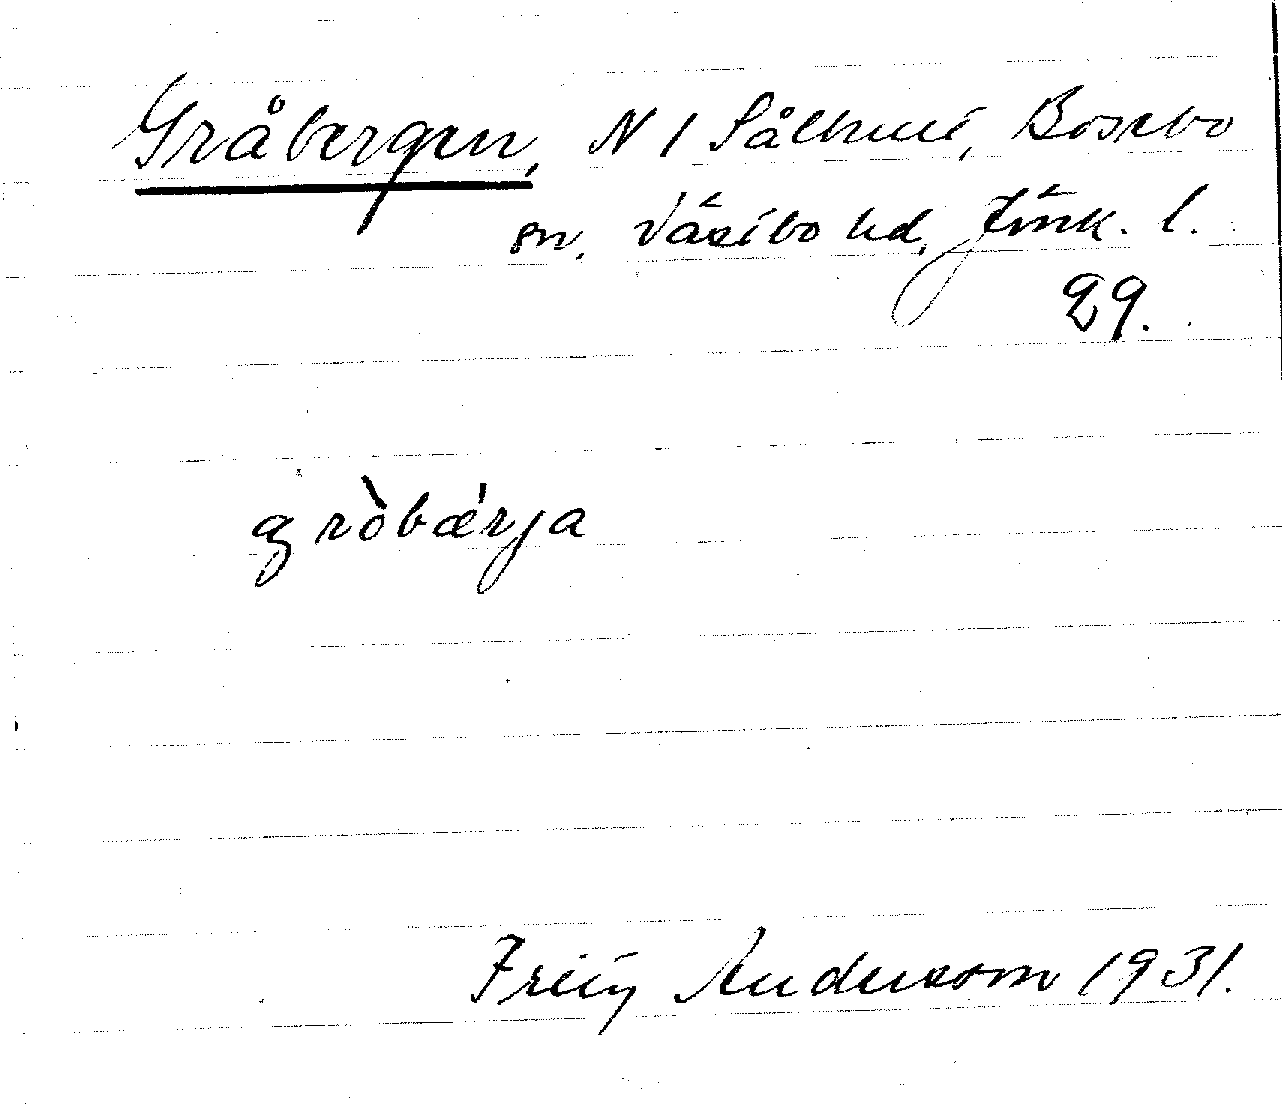 Gråbergen, N 1 Sålhult, Bosebo
sn, Västbo hd, Jönk. l.
29.
gròbǽrja
Frejy Andersson 1931.